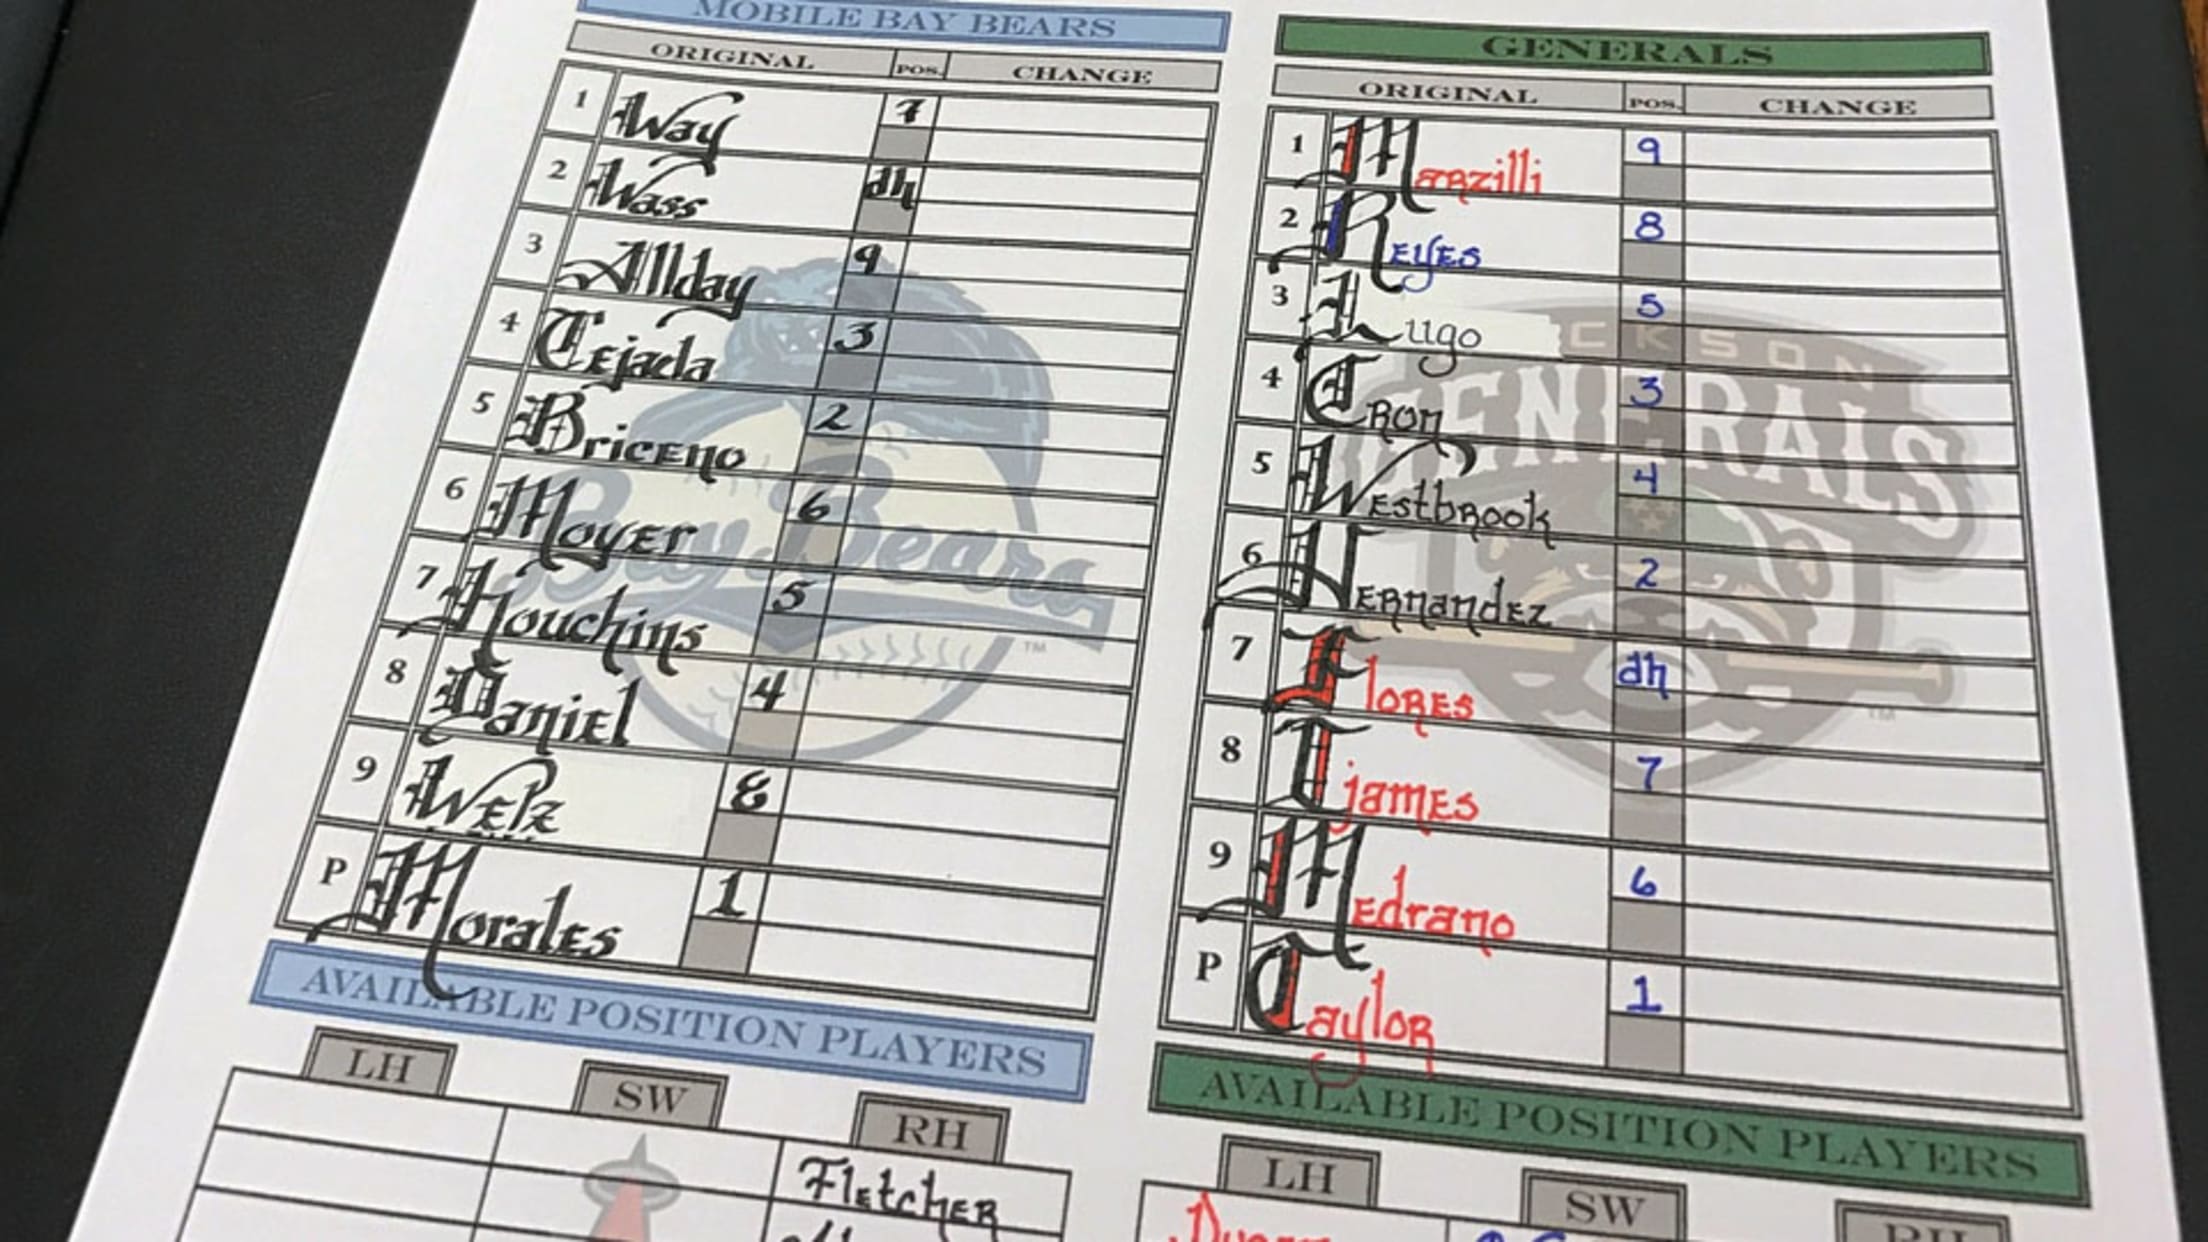 MOBILE BAY BEARS
ORIGINAL POS. CHANGE
1 Way 7
2 Wass dh
3 Allday 9
4 Tejada 3
5 Briceno 2
6 Moyer 6
7 Houchins 5
8 Daniel 4
9 Welz 8
P Morales 1
Bay Bears
TM
AVAILABLE POSITION PLAYERS
LH SW RH
Fletcher
GENERALS
ORIGINAL POS. CHANGE
1 Marzilli 9
2 Reyes 8
3 Lugo 5
4 Cron 3
5 Westbrook 4
6 Hernandez 2
7 Flores dh
8 Tjames 7
9 Medrano 6
P Taylor 1
CKSON
GENERALS
TM
AVAILABLE POSITION PLAYERS
LH SW RH